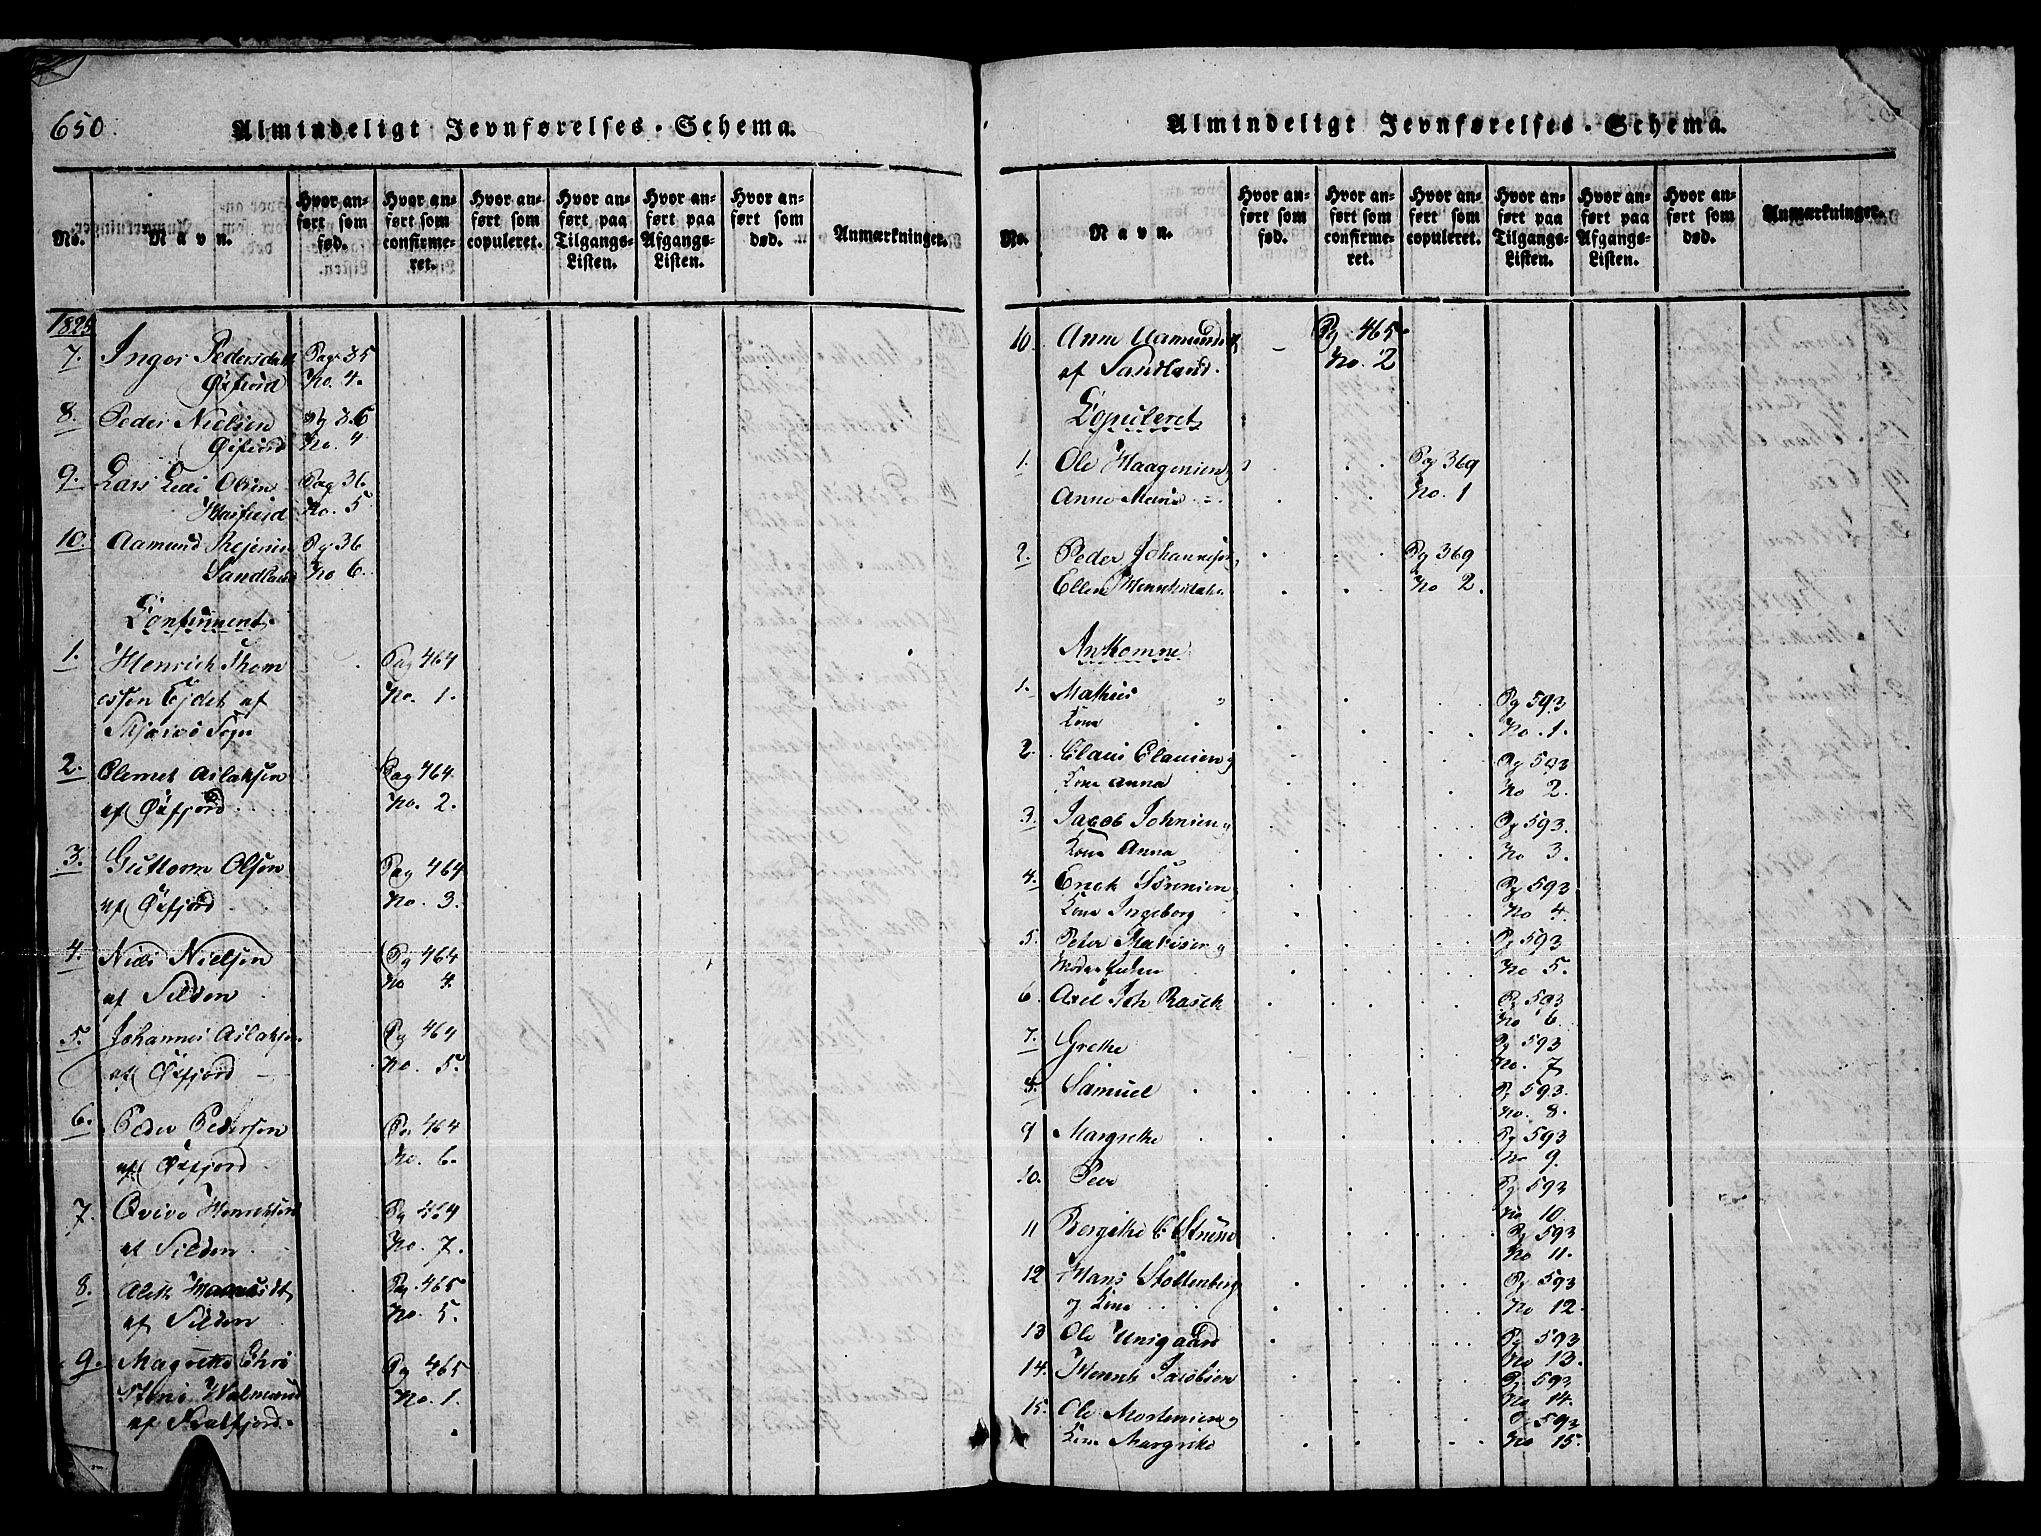 650.
Almindeligt Jevnførelses-Schema.
No.
Navn.
Hvor anført som fød.
Hvor anført som confirmeret.
Hvor anført som copuleret.
Hvor anført paa Tilgangs-Listen.
Hvor anført paa Afgangs-Listen.
Hvor anført som død.
Anmærkninger.
1825
7. Inger Pedersdatt Pag 35
Øxfiord No. 4.
8. Peder Nielsen Pg 36
Øxfiord No. 4
9. Lars Olsen Pag 36
No. 5
10. Aamund Pg 36
Sandland No 6.
1. Henrich Thom Pag 464
essen Ejdet af No. 1.
Skjærvø Sogn
2. Clemet Aslaksen Pag 464.
af Øxfjord No. 2.
3. Guttorm Olsen Pag 464
af Øxfjord No. 3.
4. Niels Nielsen Pg 464
af Silden No 4.
5. Johannes Aslaksen Pg 464
af Øxfjord No. 5.
6. Peder Pedersen Pa 464
af Øxfjord No. 6.
7. Qvive Henrichsen Pg 464
af Silden No. 7.
8. Pag 465
af Silden No. 5.
9. Magrethe Chri Pg 465
No. 1.
af
Almindeligt Jevnførelses-Schema.
No.
Navn.
Hvor anført som fød.
Hvor anført som confirmeret.
Hvor anført som copuleret.
Hvor anført paa Tilgangs-Listen.
Hvor anført paa Afgangs-Listen.
Hvor anført som død.
Anmærkninger.
10. Anne Pg 465
af Sandland. No. 2
Copuleret
1. Ole Haagensen Pag 369
Anne Marie No. 1
2. Peder Johannesen Pg 369
Ellen No 2.
Ankomne
1. Mathis Pg 593
Kone No. 1.
2. Claus Clausen Pg 593
Kone Anna No 2.
3. Jacob Johnsen Pg 593.
Kone Anna No 3.
4. Erich Sørensen Pg 593
Kone Ingeborg No 4.
5. Peter Pg 593
Moder No 5.
6. Axel Joh Rasch Pg 593
No 6.
7. Grethe Pg 593
No. 7
8. Samuel Pg 593.
No. 8.
9 Margrethe Pg 593
No 9.
10. Peer Pg 593
No 10.
11 Bergithe Pg 593
No 11.
12 Hans Stoltenberg Pg 593
og Kone No 12.
13 Ole Pg 593
No 13.
14. Henrik Jacobsen Pg 593
No 14.
15. Ole Mortensen og Pg 593
Kone Margrethe No 15.